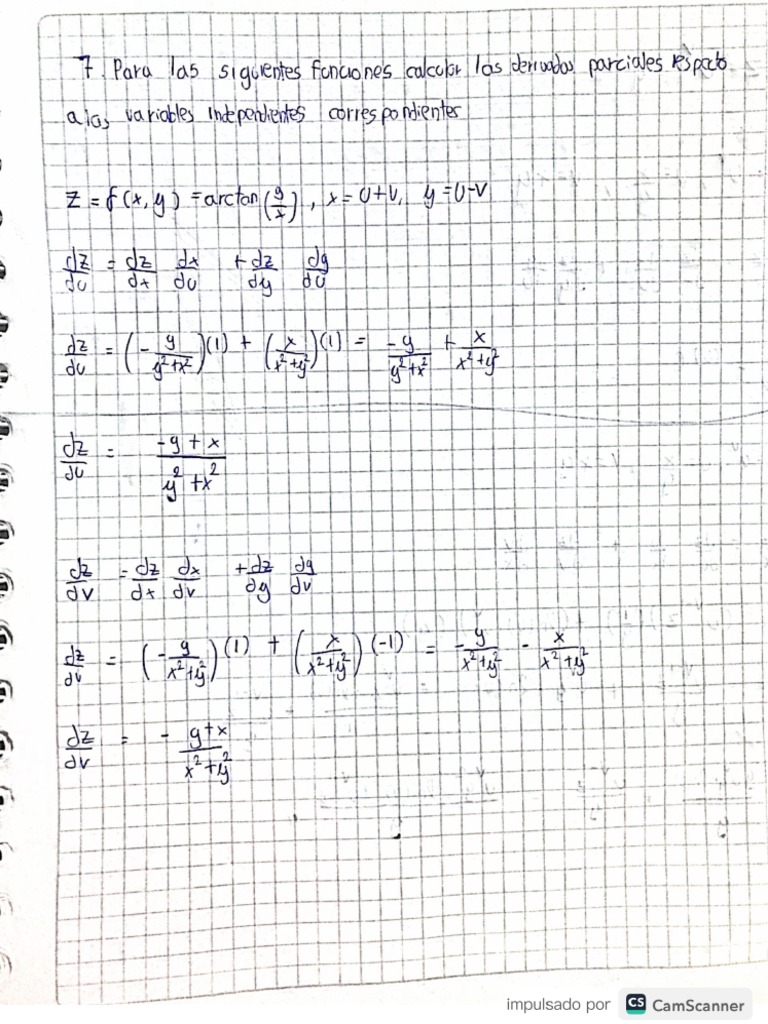 7. Para las siguientes funciones calcular las derivadas parciales respecto
a las variables independientes correspondientes
z = f(x, y) = arctan(y/x), x = U+V, y = U-V
dz/du = dz/dx dx/du + dz/dy dy/du
dz/du = (- y/(y²+x²))(1) + (x/(x²+y²))(1) = -y/(y²+x²) + x/(x²+y²)
dz/du = (-y + x)/(y²+x²)
dz/dv = dz/dx dx/dv + dz/dy dy/dv
dz/dv = (- y/(x²+y²))(1) + (x/(x²+y²))(-1) = - y/(x²+y²) - x/(x²+y²)
dz/dv = - (y+x)/(x²+y²)
impulsado por CS CamScanner